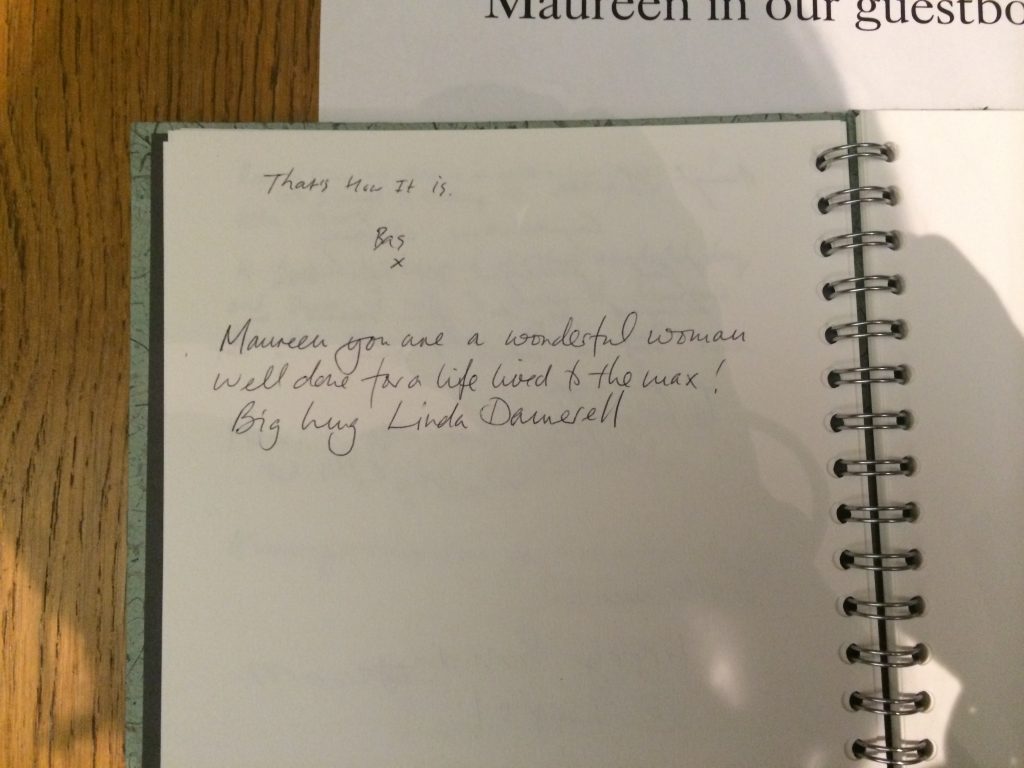 Maureen in our guestbo
That's How It is.
Bas
x
Maureen you are a wonderful woman
well done for a life lived to the max!
Big hug Linda Damerell